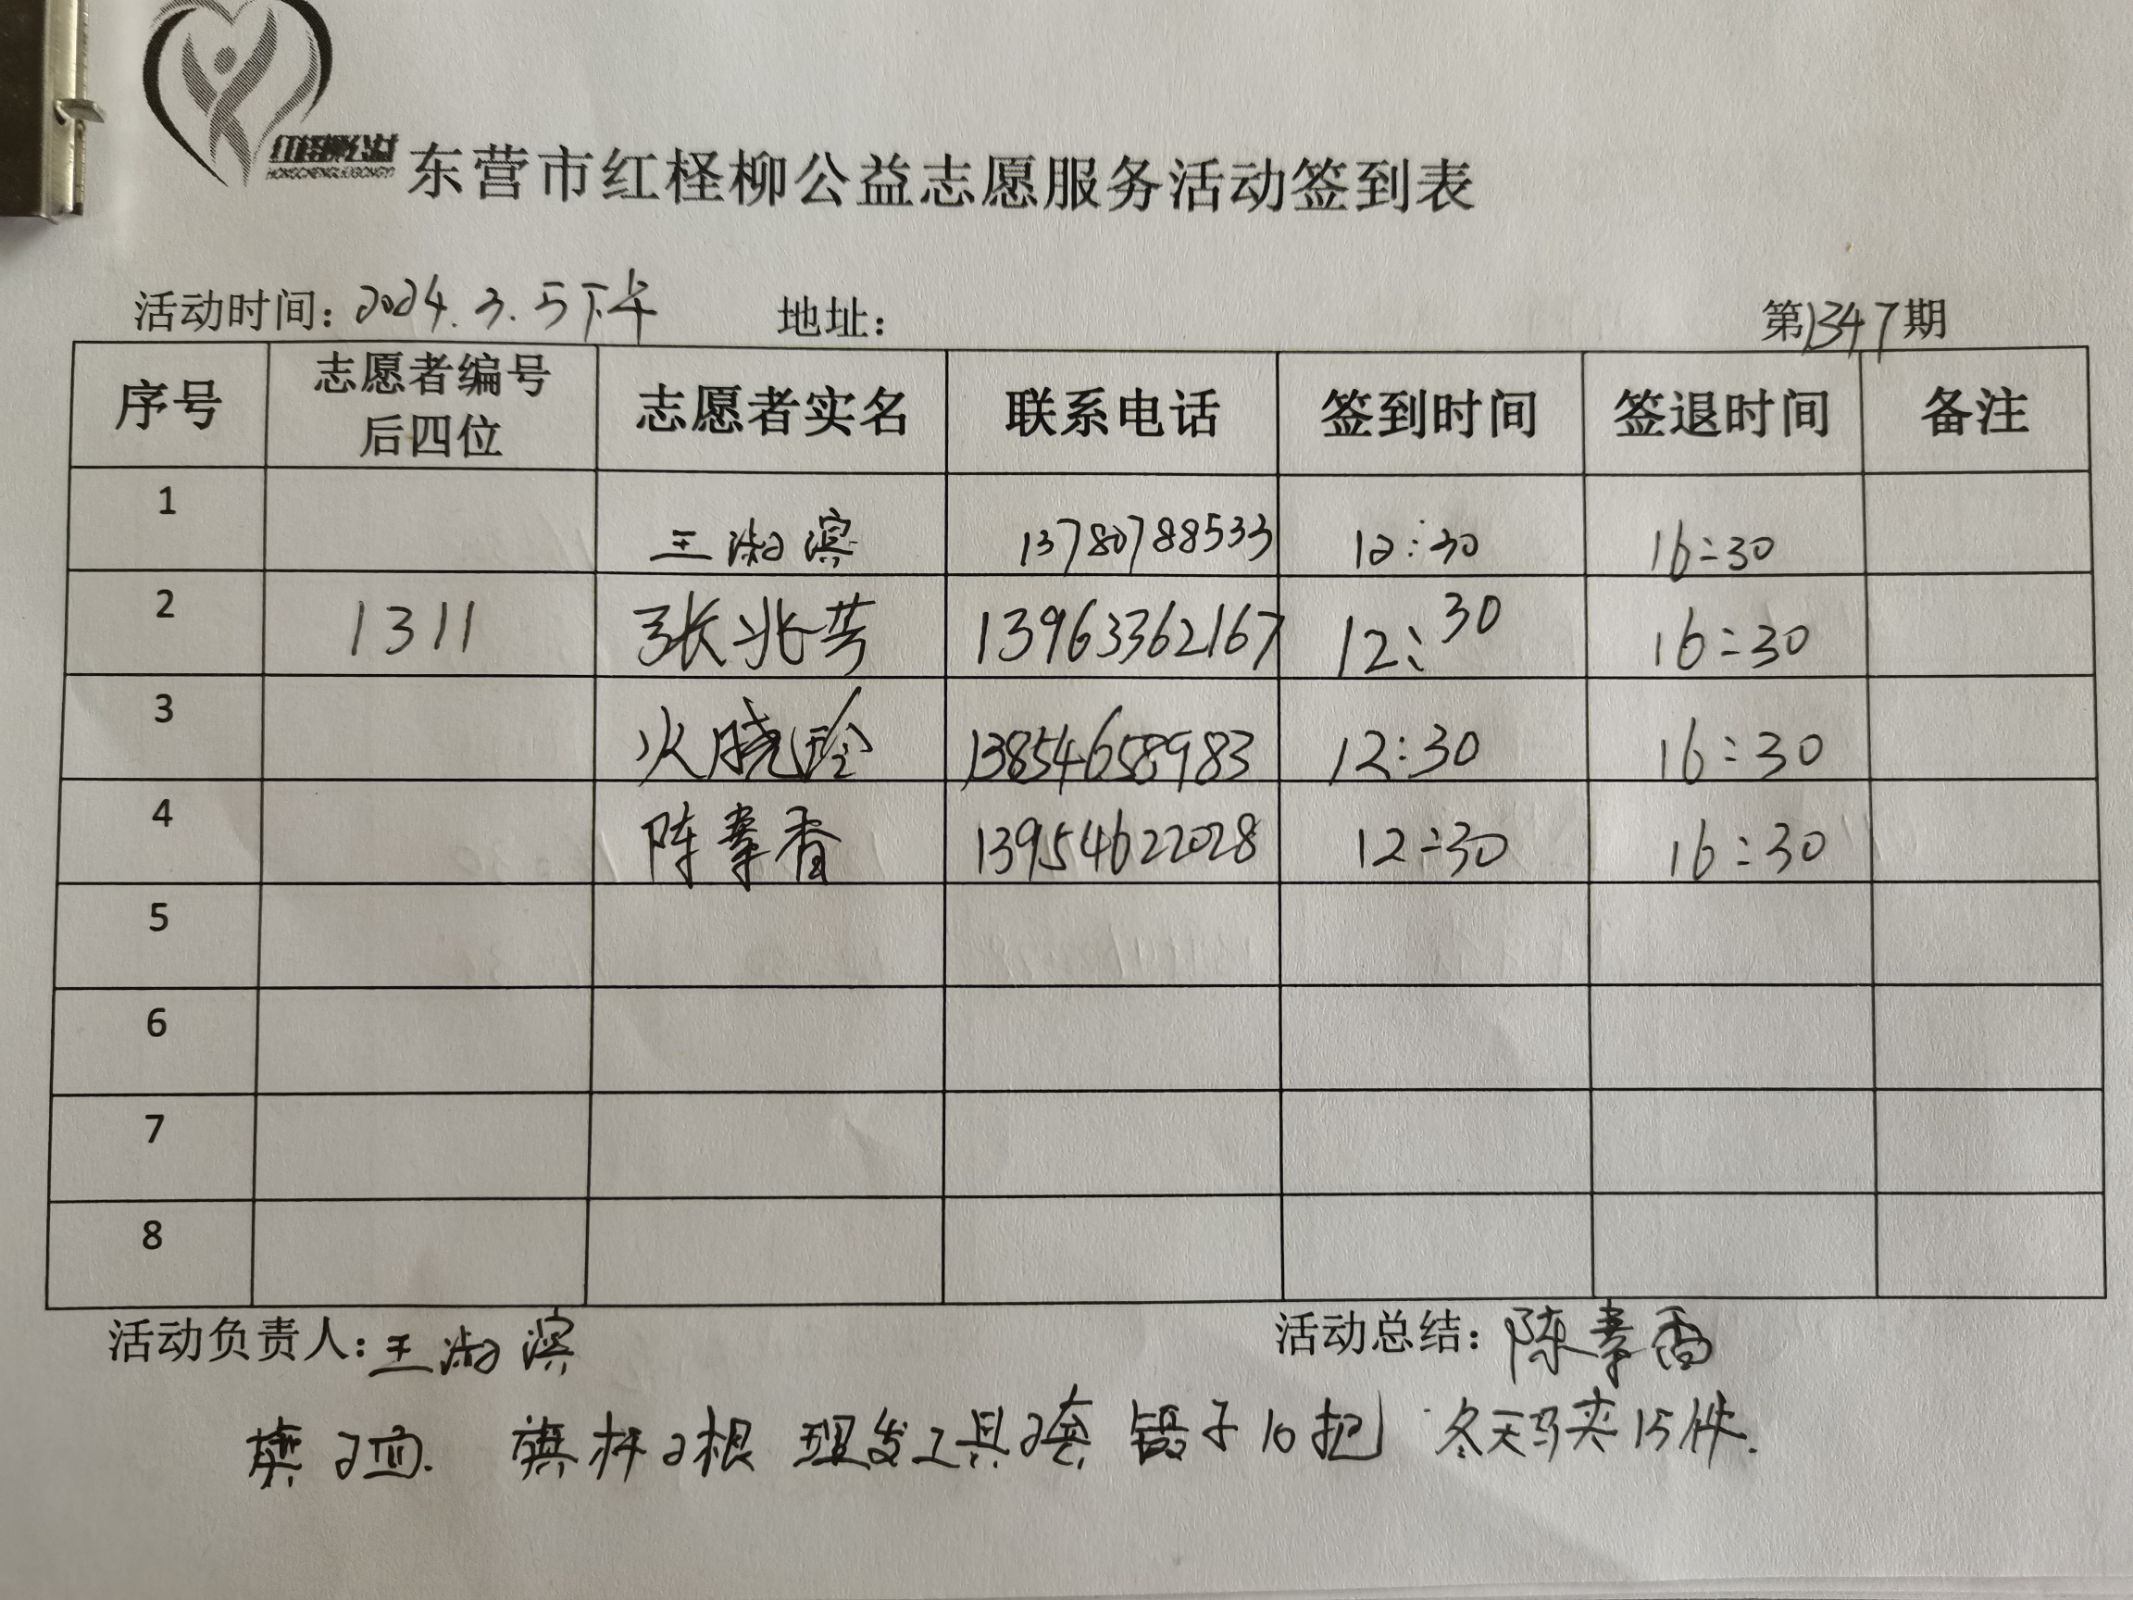 红柽柳公益
HONGCHENGLIUGONGYI
东营市红柽柳公益志愿服务活动签到表
活动时间: 2024.3.5下午 地址: 第1347期
序号 志愿者编号后四位 志愿者实名 联系电话 签到时间 签退时间 备注
1 王淑滨 13780788533 12:30 16:30
2 1311 张兆芳 13963362167 12:30 16:30
3 火晓玲 13854658983 12:30 16:30
4 陈秦香 13954622028 12:30 16:30
5
6
7
8
活动负责人: 王淑滨 活动总结: 陈秦香
旗2面. 旗杆2根 理发工具2套 镊子10把 冬天马夹15件.